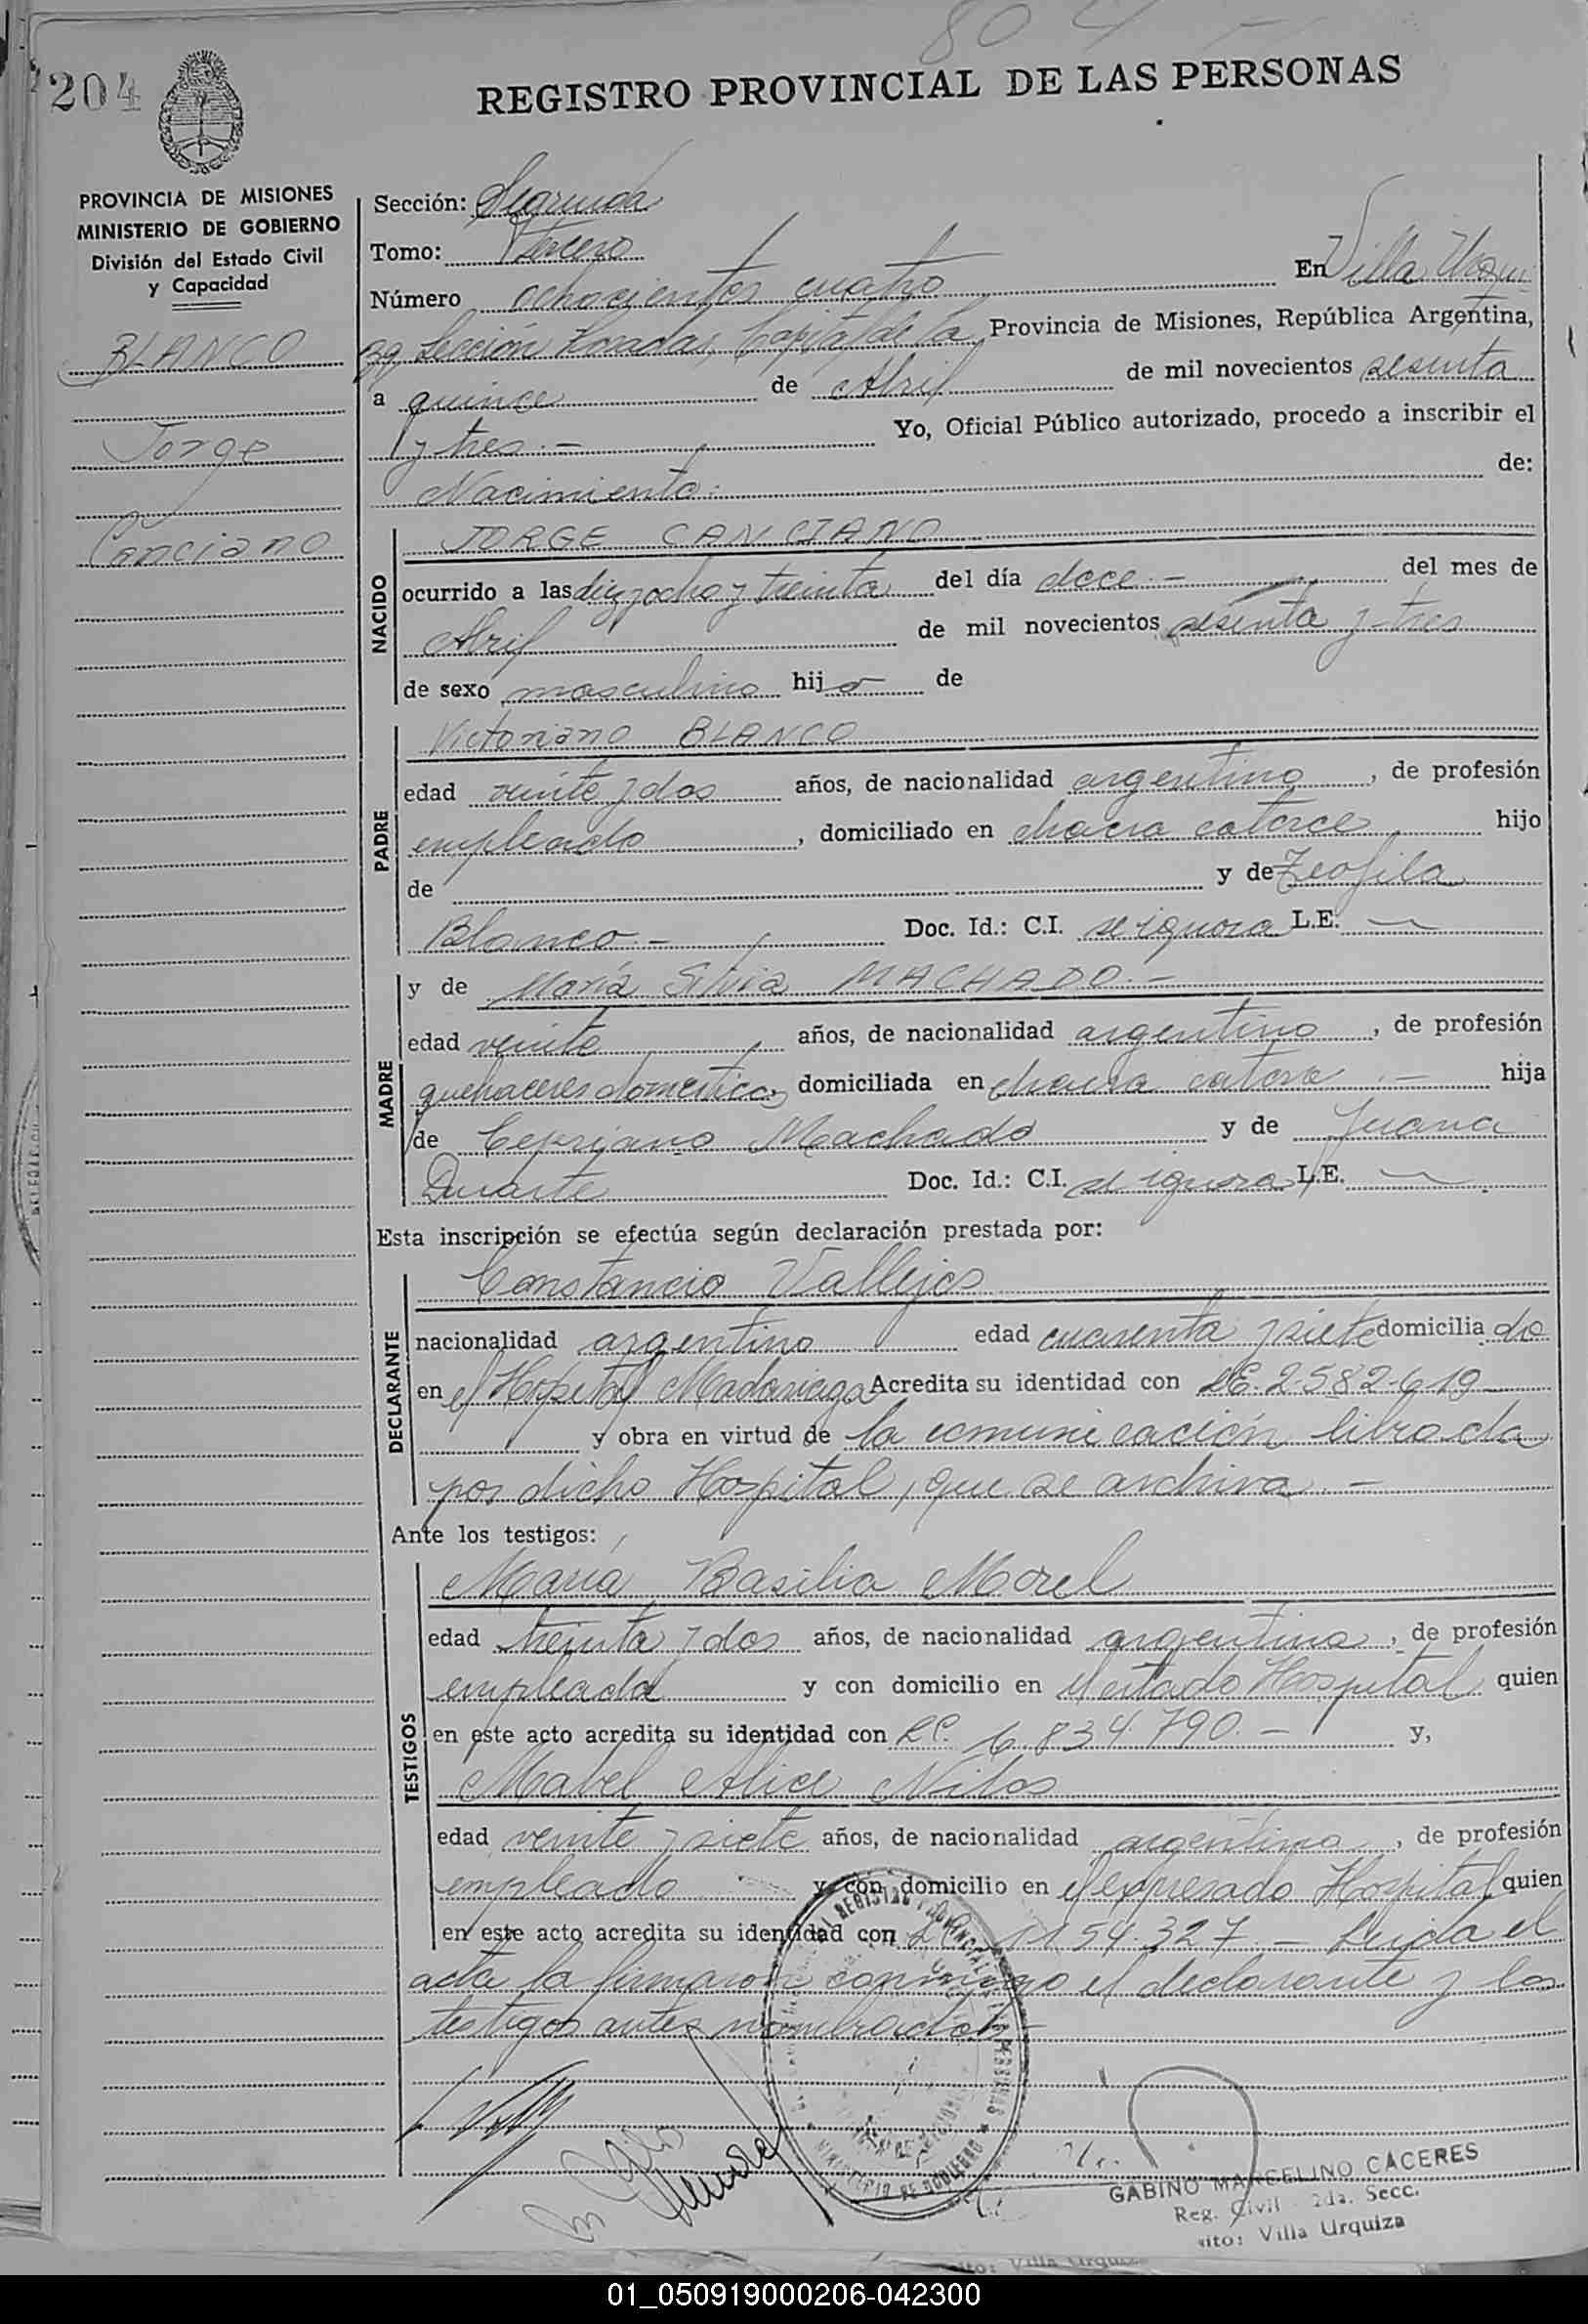 804
204
REGISTRO PROVINCIAL DE LAS PERSONAS
PROVINCIA DE MISIONES
MINISTERIO DE GOBIERNO
División del Estado Civil
y Capacidad
BLANCO
Jorge
Canciano
Sección: Segunda
Tomo: Tercero
Número ochocientos cuatro En Villa Urqui
za Sección Posadas, Capital de la Provincia de Misiones, República Argentina,
a quince de Abril de mil novecientos sesenta
y tres.- Yo, Oficial Público autorizado, procedo a inscribir el
Nacimiento. de:
NACIDO
JORGE CANCIANO
ocurrido a las diez y ocho y treinta del día doce.- del mes de
Abril de mil novecientos sesenta y tres
de sexo masculino hijo de
PADRE
Victoriano BLANCO
edad veinte y dos años, de nacionalidad argentino, de profesión
empleado, domiciliado en chacra catorce hijo
de y de Teofila
Blanco.- Doc. Id.: C.I. se ignora L.E.
MADRE
y de María Silvia MACHADO.-
edad veinte años, de nacionalidad argentino, de profesión
quehaceres domesticos domiciliada en chacra catorce.- hija
de Cepriano Machado y de Juana
Duarte Doc. Id.: C.I. se ignora L.E.
Esta inscripción se efectúa según declaración prestada por:
DECLARANTE
Constancio Vallejos
nacionalidad argentino edad cuarenta y siete domiciliado
en el Hospital Madariaga Acredita su identidad con LE. 2.582.619
y obra en virtud de la comunicación librada
por dicho Hospital, que se archiva.-
Ante los testigos:
TESTIGOS
María Basilia Morel
edad treinta y dos años, de nacionalidad argentina, de profesión
empleada y con domicilio en el citado Hospital quien
en este acto acredita su identidad con LC. 6.834.790.- y,
Mabel Alice
edad veinte y siete años, de nacionalidad argentina, de profesión
empleado y con domicilio en el expresado Hospital quien
en este acto acredita su identidad con LC 1154.327.- Leida el
acta la firmaron conmigo el declarante y los
testigos antes nombrados.-
GABINO MARCELINO CACERES
Reg. Civil 2da. Secc.
Villa Urquiza
01_050919000206-042300